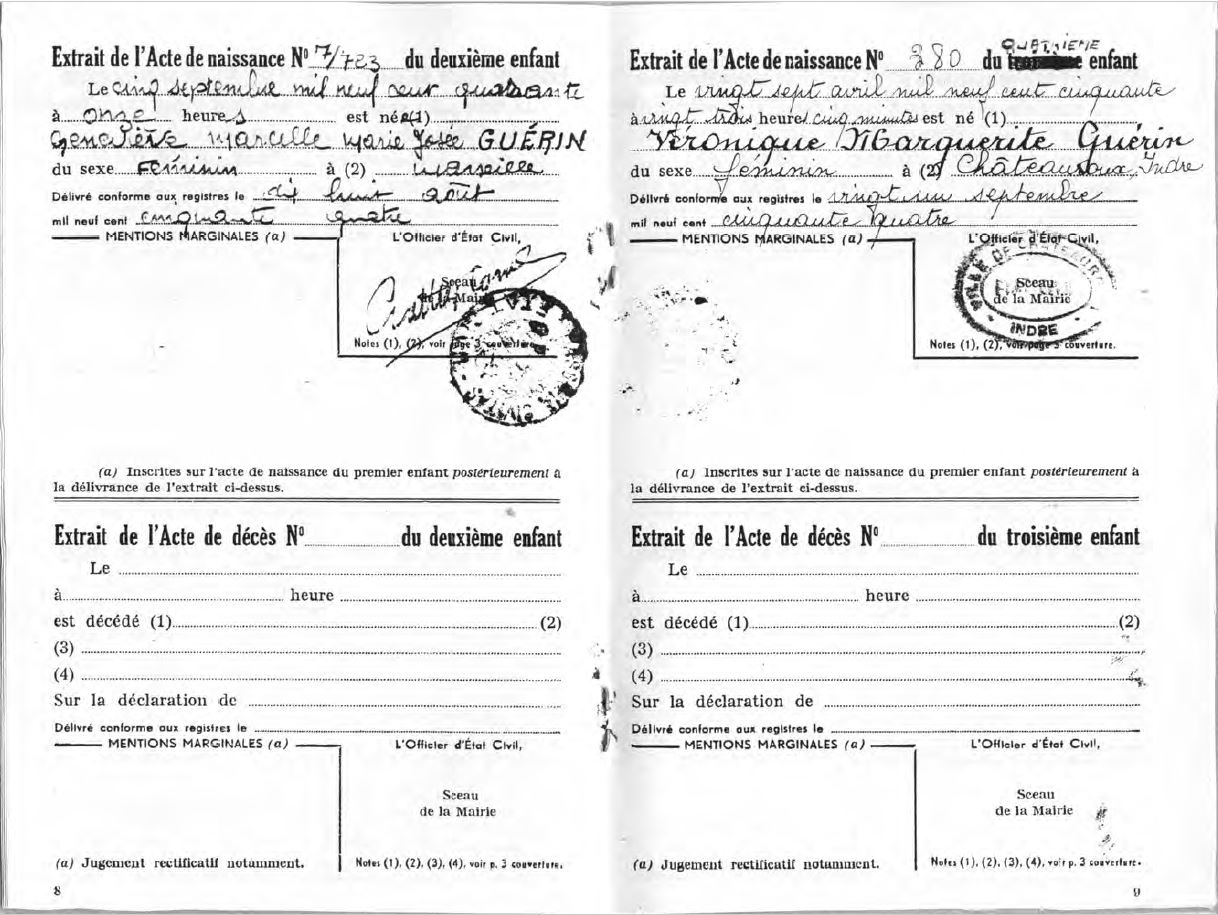 Extrait de l'Acte de naissance Nº 7/723 du deuxième enfant
Le cinq septembre mil neuf cent quarante
à onze heures est née (1)
Geneviève Marcelle Marie Josée GUÉRIN
du sexe Féminin à (2) Marseille
Délivré conforme aux registres le dix huit août
mil neuf cent cinquante quatre
MENTIONS MARGINALES (a) L'Officier d'État Civil,
Sceau
de la Mairie
Notes (1), (2), voir page 3 couverture.
(a) Inscrites sur l'acte de naissance du premier enfant postérieurement à
la délivrance de l'extrait ci-dessus.
Extrait de l'Acte de décès Nº du deuxième enfant
Le
à heure
est décédé (1) (2)
(3)
(4)
Sur la déclaration de
Délivré conforme aux registres le
MENTIONS MARGINALES (a) L'Officier d'État Civil,
Sceau
de la Mairie
(a) Jugement rectificatif notamment. Notes (1), (2), (3), (4), voir p. 3 couverture.
8
QUATRIEME
Extrait de l'Acte de naissance Nº 380 du troisième enfant
Le vingt sept avril mil neuf cent cinquante
à vingt trois heures cinq minutes est né (1)
Véronique Marguerite Guérin
du sexe féminin à (2) Châteauroux, Indre
Délivré conforme aux registres le vingt un septembre
mil neuf cent cinquante quatre
MENTIONS MARGINALES (a) L'Officier d'État Civil,
VILLE DE CHATEAUROUX
Sceau
de la Mairie
INDRE
Notes (1), (2), voir page 3 couverture.
(a) Inscrites sur l'acte de naissance du premier enfant postérieurement à
la délivrance de l'extrait ci-dessus.
Extrait de l'Acte de décès Nº du troisième enfant
Le
à heure
est décédé (1) (2)
(3)
(4)
Sur la déclaration de
Délivré conforme aux registres le
MENTIONS MARGINALES (a) L'Officier d'État Civil,
Sceau
de la Mairie
(a) Jugement rectificatif notamment. Notes (1), (2), (3), (4), voir p. 3 couverture.
9